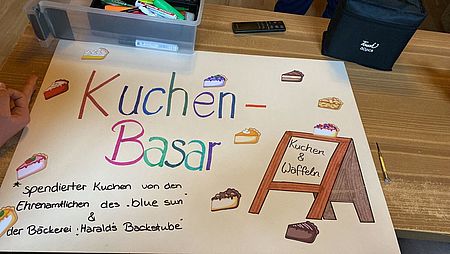 Kuchen-
Basar
Kuchen
&
Waffeln
* spendierter Kuchen von den
Ehrenamtlichen des .blue sun
&
der Bäckerei „Harald's Backstube“